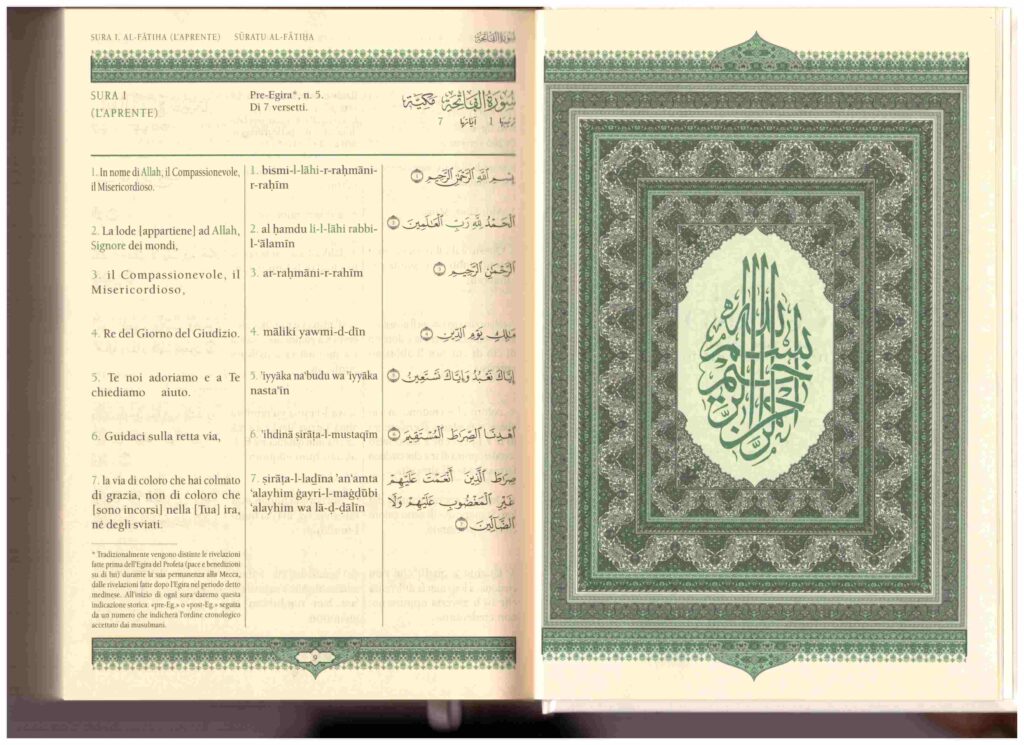 SURA I. AL-FĀTIHA (L'APRENTE) SŪRATU AL-FĀTIḤA سُورَةُ ٱلْفَاتِحَةِ
SURA I
(L'APRENTE)
Pre-Egira*, n. 5.
Di 7 versetti.
سُورَةُ ٱلْفَاتِحَةِ مَكِّيَّة
ترتيبها 1 آياتها 7
1. In nome di Allah, il Compassionevole,
il Misericordioso.
1. bismi-l-lāhi-r-raḥmāni-
r-raḥīm
بِسْمِ ٱللَّهِ ٱلرَّحْمَٰنِ ٱلرَّحِيمِ ١
2. La lode [appartiene] ad Allah,
Signore dei mondi,
2. al ḥamdu li-l-lāhi rabbi-
l-'ālamīn
ٱلْحَمْدُ لِلَّهِ رَبِّ ٱلْعَٰلَمِينَ ٢
3. il Compassionevole, il
Misericordioso,
3. ar-raḥmāni-r-rahīm
ٱلرَّحْمَٰنِ ٱلرَّحِيمِ ٣
4. Re del Giorno del Giudizio.
4. māliki yawmi-d-dīn
مَٰلِكِ يَوْمِ ٱلدِّينِ ٤
5. Te noi adoriamo e a Te
chiediamo aiuto.
5. 'iyyāka na'budu wa 'iyyāka
nasta'īn
إِيَّاكَ نَعْبُدُ وَإِيَّاكَ نَسْتَعِينُ ٥
6. Guidaci sulla retta via,
6. 'ihdinā ṣirāṭa-l-mustaqīm
ٱهْدِنَا ٱلصِّرَٰطَ ٱلْمُسْتَقِيمَ ٦
7. la via di coloro che hai colmato
di grazia, non di coloro che
[sono incorsi] nella [Tua] ira,
né degli sviati.
7. ṣirāṭa-l-laḏīna 'an'amta
'alayhim ġayri-l-maġdūbi
'alayhim wa lā-ḍ-ḍālīn
صِرَٰطَ ٱلَّذِينَ أَنْعَمْتَ عَلَيْهِمْ
غَيْرِ ٱلْمَغْضُوبِ عَلَيْهِمْ وَلَا
ٱلضَّآلِّينَ ٧
* Tradizionalmente vengono distinte le rivelazioni
fatte prima dell'Egira del Profeta (pace e benedizioni
su di lui) durante la sua permanenza alla Mecca,
dalle rivelazioni fatte dopo l'Egira nel periodo detto
medinese. All'inizio di ogni sura daremo questa
indicazione storica: «pre-Eg.» o «post-Eg.» seguita
da un numero che indicherà l'ordine cronologico
accettato dai musulmani.
9
بسم الله الرحمن الرحيم